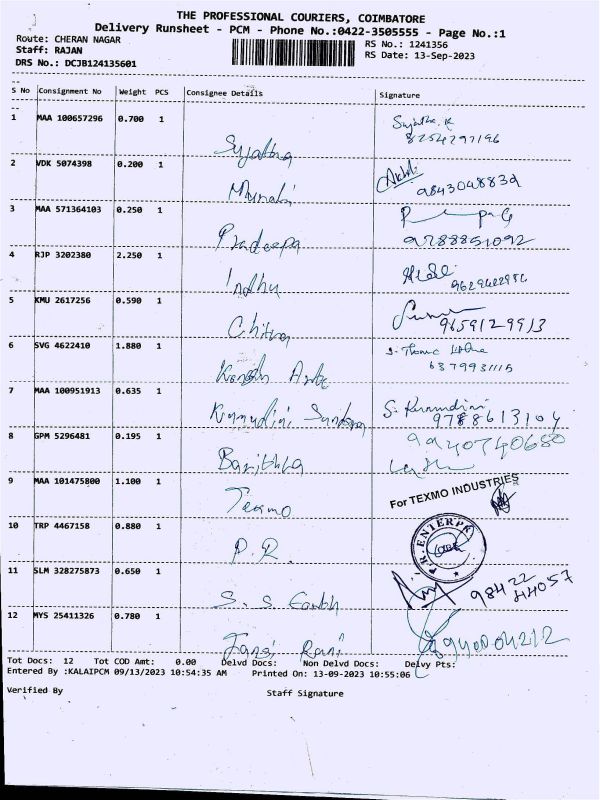 THE PROFESSIONAL COURIERS, COIMBATORE
Delivery Runsheet - PCM - Phone No.:0422-3505555 - Page No.:1
Route: CHERAN NAGAR RS No.: 1241356
Staff: RAJAN RS Date: 13-Sep-2023
DRS No.: DCJB124135601
S No Consignment No Weight PCS Consignee Details Signature
1 MAA 100657296 0.700 1
Sujatha Sujatha. K
8254297196
2 VDK 5074398 0.200 1
9843048839
3 MAA 571364103 0.250 1
Pradeepa 9788851092
4 RJP 3202380 2.250 1
Indhu
5 KMU 2617256 0.590 1
Chitra 9659129913
6 SVG 4622410 1.880 1
6379931115
7 MAA 100951913 0.635 1
Kumudini Sundaram S. Kumudini
9788613104
8 GPM 5296481 0.195 1
9940740680
9 MAA 101475800 1.100 1
Texmo For TEXMO INDUSTRIES
10 TRP 4467158 0.880 1
P. R. P.R. ENTERPR
CBE
11 SLM 328275873 0.650 1
S. S. 98422
44057
12 MYS 25411326 0.780 1
Rani
Tot Docs: 12 Tot COD Amt: 0.00 Delvd Docs: Non Delvd Docs: Delvy Pts:
Entered By :KALAIPCM 09/13/2023 10:54:35 AM Printed On: 13-09-2023 10:55:06
Verified By Staff Signature